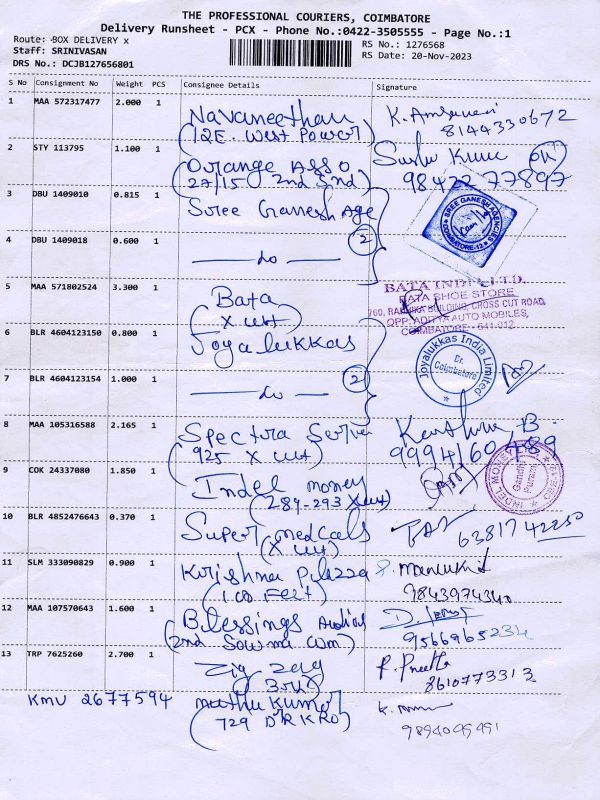 THE PROFESSIONAL COURIERS, COIMBATORE
Delivery Runsheet - PCX - Phone No.:0422-3505555 - Page No.:1
Route: -BOX DELIVERY x
Staff: SRINIVASAN
DRS No.: DCJB127656801
RS No.: 1276568
RS Date: 20-Nov-2023
S No Consignment No Weight PCS Consignee Details Signature
1 MAA 572317477 2.000 1 Navaneethan
(12E. West Power)
8144330672
2 STY 113795 1.100 1 Orange Asso
(27/15 2nd 2nd)
98422 77897
3 DBU 1409010 0.815 1 Sree Ganesh Age
SREE GANESH AGENCIES
COIMBATORE-12
4 DBU 1409018 0.600 1 — do — 2
5 MAA 571802524 3.300 1 Bata
(X cut)
BATA INDIA LTD.
BATA SHOE STORE
760, RADHIKA BUILDING, CROSS CUT ROAD,
OPP: ADITYA AUTO MOBILES,
COIMBATORE - 641 012.
6 BLR 4604123150 0.800 1 Joyalukkas
Joyalukkas India Limited
Coimbatore
7 BLR 4604123154 1.000 1 — do — 2
8 MAA 105316588 2.165 1 Spectra Server
(925 X cut)
9994160489
9 COK 24337080 1.850 1 Indel money
(289-293 X cut)
INDEL MONEY
Gandhi
Puram
10 BLR 4852476643 0.370 1 Super medcals
(X cut)
6381742250
11 SLM 333090829 0.900 1 Krishna Plazza
(100 Feet)
9843974340
12 MAA 107570643 1.600 1 Blessings
(2nd Sowma Com)
9566965234
13 TRP 7625260 2.700 1 Zig Zag
P. Preetha
8610773313
KMU 2677594 muthu Kumar
(729 DR KRO)
9894095491